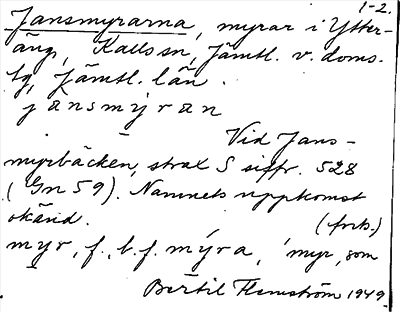 1-2.
Jansmyrarna, myrar i Ytter-
äng, Kalls sn, Jämtl. v. doms.
tg, Jämtl. län.
jansmýran
Vid Jans-
myrbäcken, strax S siffr. 528
(Gn 59). Namnets uppkomst
okänd. (forts.)
myr, f., b.f. mýra, 'myr, som
Bertil Flemström 1949.